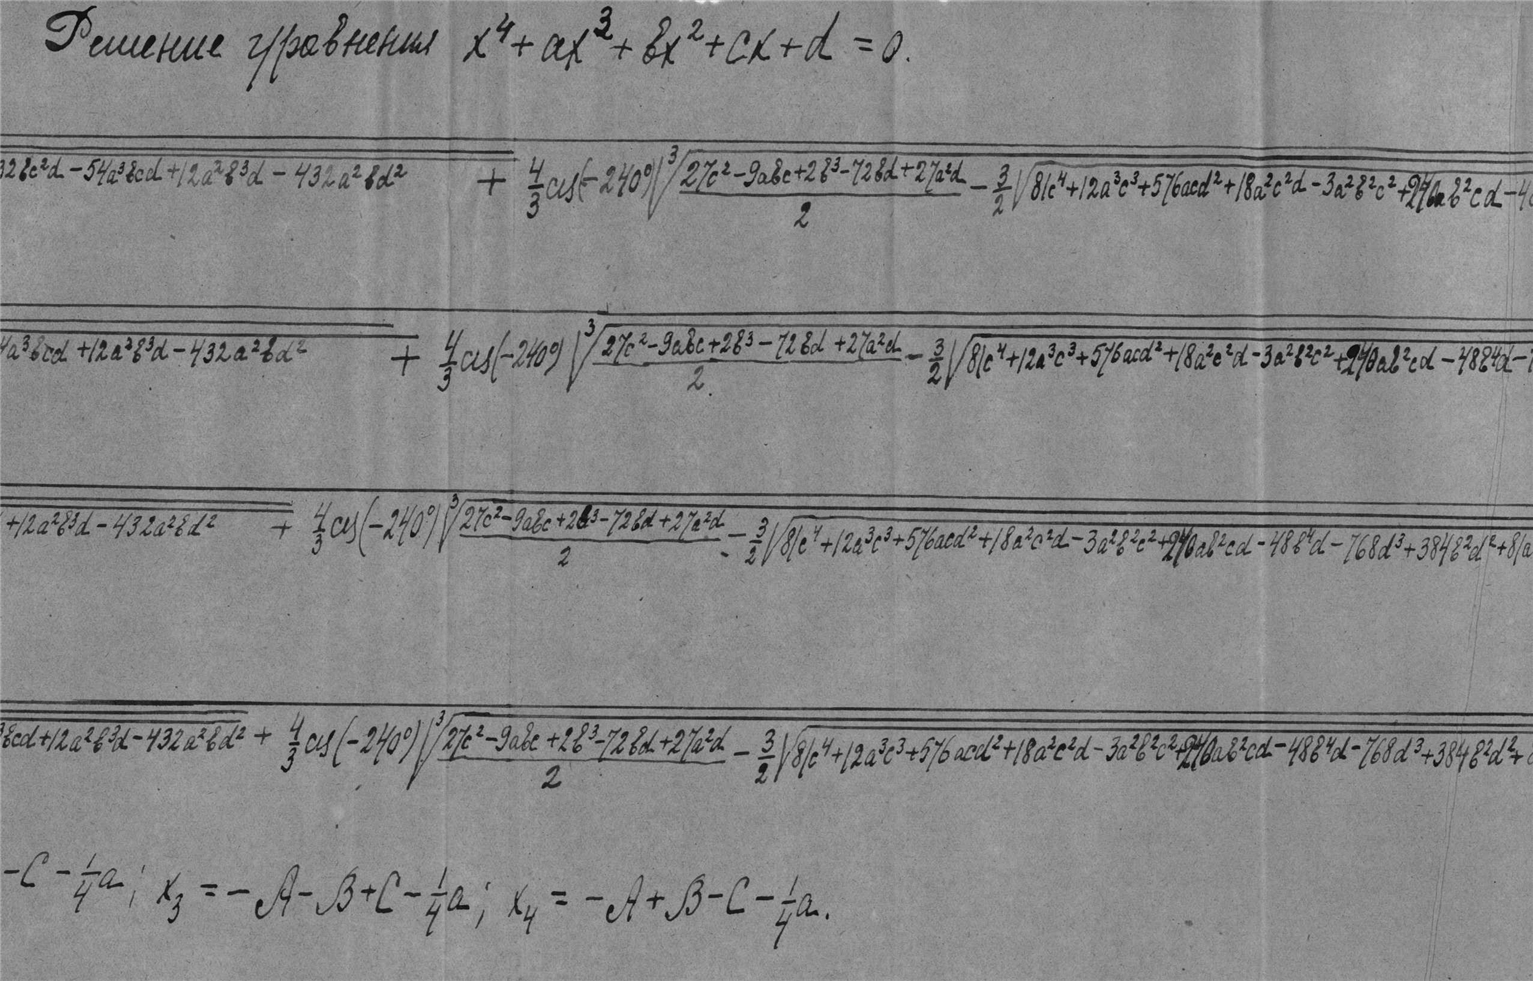 Решение уравнения x⁴ + ax³ + bx² + cx + d = 0.
32bc²d − 54a³bcd + 12a²b³d − 432a²bd² + 4/3 cis(−240°) ∛((27c² − 9abc + 2b³ − 72bd + 27a²d)/2 − 3/2 √(81c⁴ + 12a³c³ + 576acd² + 18a²c²d − 3a²b²c² + 240ab²cd − 4
4a³bcd + 12a³b³d − 432a²bd² + 4/3 cis(−240°) ∛((27c² − 9abc + 2b³ − 72bd + 27a²d)/2 − 3/2 √(81c⁴ + 12a³c³ + 576acd² + 18a²c²d − 3a²b²c² + 240ab²cd − 48b⁴d −
+ 12a²b³d − 432a²bd² + 4/3 cis(−240°) ∛((27c² − 9abc + 2b³ − 72bd + 27a²d)/2 − 3/2 √(81c⁴ + 12a³c³ + 576acd² + 18a²c²d − 3a²b²c² + 240ab²cd − 48b⁴d − 768d³ + 384b²d² + 81a
³bcd + 12a²b³d − 432a²bd² + 4/3 cis(−240°) ∛((27c² − 9abc + 2b³ − 72bd + 27a²d)/2 − 3/2 √(81c⁴ + 12a³c³ + 576acd² + 18a²c²d − 3a²b²c² + 240ab²cd − 48b⁴d − 768d³ + 384b²d² +
−C − 1/4 a; x₃ = −A − B + C − 1/4 a; x₄ = −A + B − C − 1/4 a.